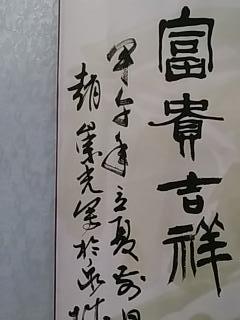 富貴吉祥
甲午年立夏前日
趙崇光筆於